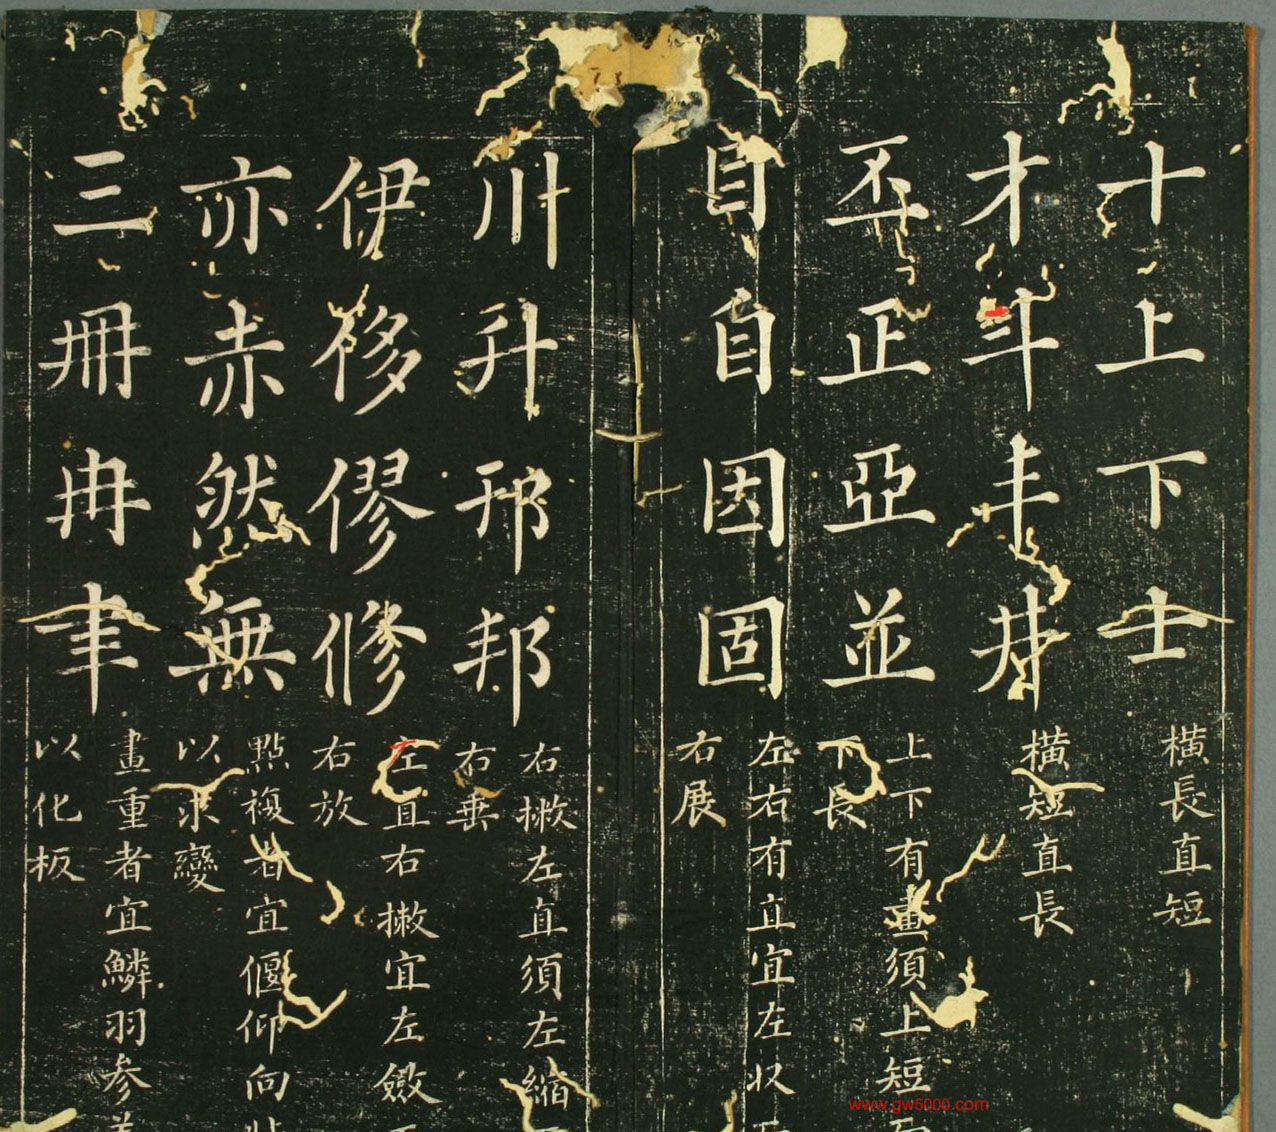 十上下士
橫長直短
才斗丰井
橫短直長
丕正亞並
上下有畫須上短
下長
目自因固
左右有直宜左收
右展
川升邢邦
右撇左直須左縮
右垂
伊侈僇修
左直右撇宜左斂
右放
亦赤然無
點複者宜偃仰向
以求變
三冊冉聿
畫重者宜鱗羽參
以化板
www.gw5000.com